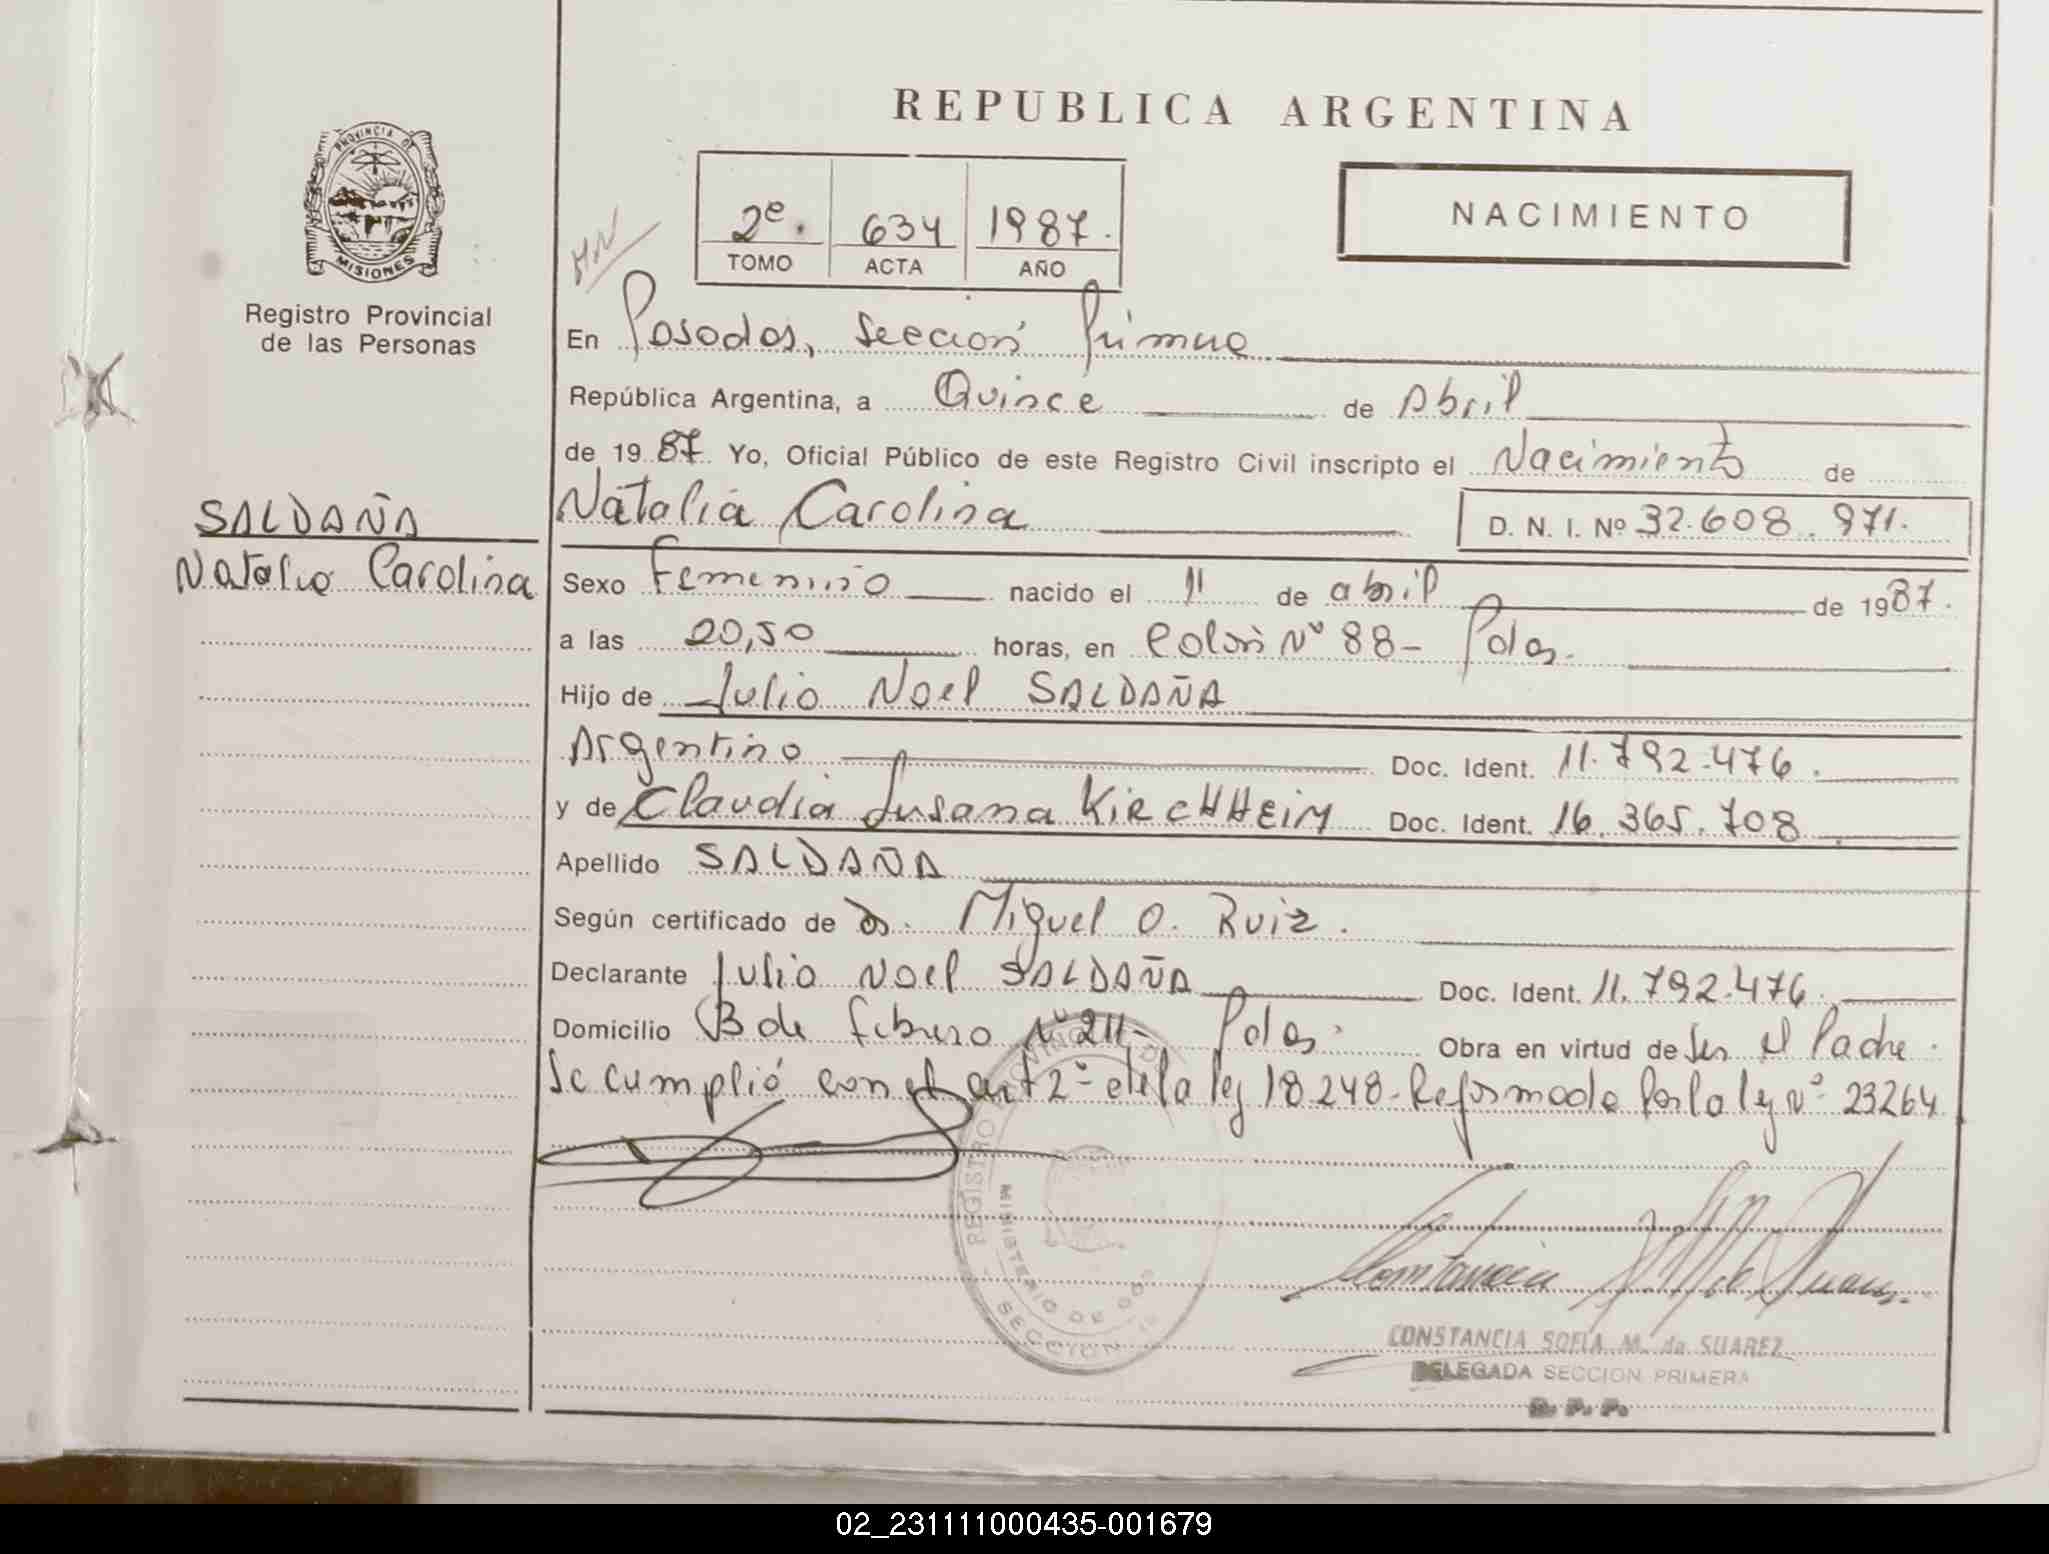 REPUBLICA ARGENTINA
PROVINCIA DE
MISIONES
Registro Provincial
de las Personas
2º. 634 1987.
TOMO ACTA AÑO
NACIMIENTO
En Posadas, Sección Primera
República Argentina, a Quince de Abril
de 1987 Yo, Oficial Público de este Registro Civil inscripto el Nacimiento de
SALDAÑA
Natalia Carolina
Natalia Carolina D. N. I. Nº 32.608.971.
Sexo Femenino nacido el 11 de abril de 1987.
a las 20,50 horas, en Colón Nº 88- Pdas.
Hijo de Julio Noel SALDAÑA
Argentino Doc. Ident. 11.792.476.
y de Claudia Susana KIRCHHEIM Doc. Ident. 16.365.708
Apellido SALDAÑA
Según certificado de Miguel O. Ruiz.
Declarante Julio Noel SALDAÑA Doc. Ident. 11.792.476.
Domicilio 3 de febrero Nº 211- Pdas. Obra en virtud de Ser el Padre.
Se cumplió con el art 2º- de la ley 18.248- Reformada por la ley Nº 23264
REGISTRO
MINISTERIO DE GOB
SECCION 1ª
CONSTANCIA SOFIA M. de SUAREZ
DELEGADA SECCION PRIMERA
R. P. P.
02_231111000435-001679